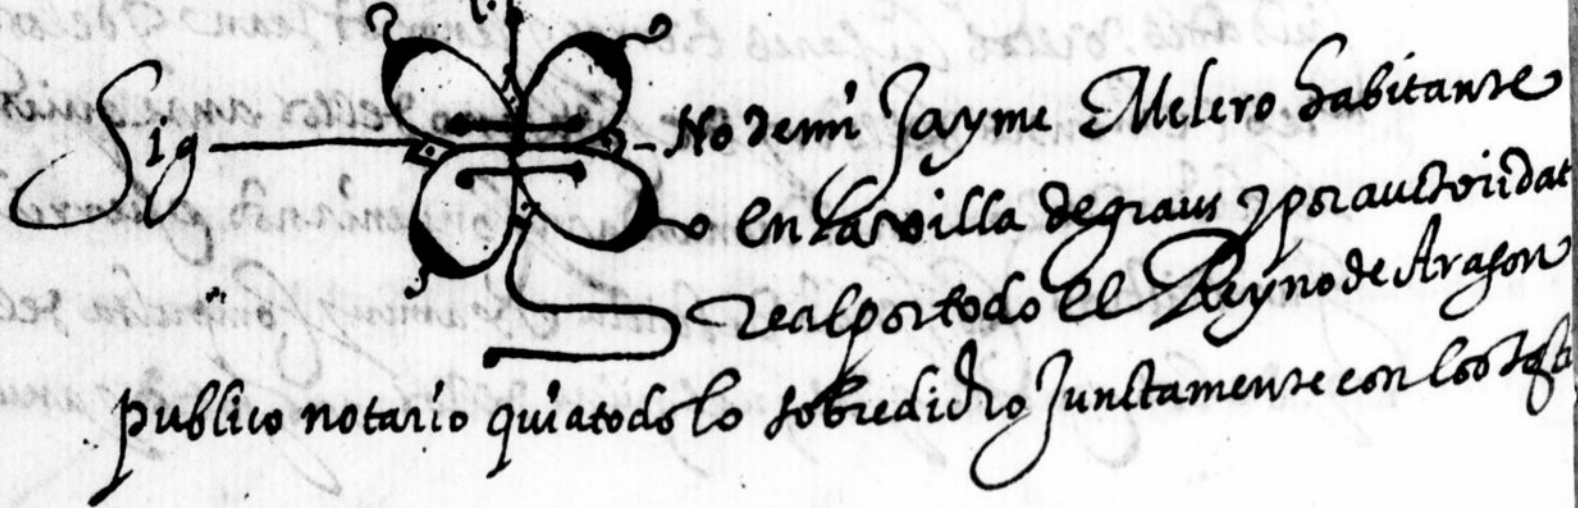 Sig No de mi Jayme Melero habitante
en la villa de graus y por auctoridat
real por todo el Reyno de Aragon
publico notario qui a todo lo sobredicho Junctamente con los